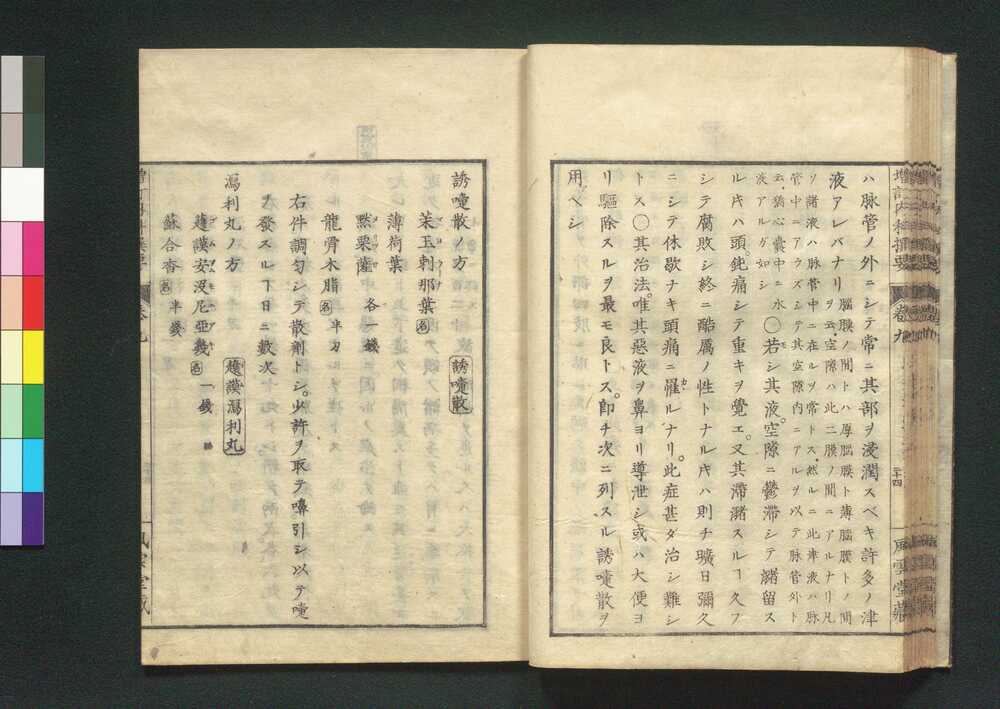 ハ脉管ノ外ニシテ常ニ其部ヲ浸潤スベキ許多ノ津
液アレバナリ
腦膜ノ間トハ厚腦膜ト薄腦膜トノ間
ヲ云空隙ハ此二膜ノ間ニアルナリ凡
ソ諸液ハ脉管中ニ在ルヲ常トス然ルニ此津液ハ脉
管中ニアラズシテ其空隙内ニアルヲ以テ脉管外ト
云猶心嚢中ニ水
液アルガ如シ
〇若シ其液空隙ニ鬱滞シテ瀦留ス
ルキハ頭鈍痛シテ重キヲ覺エ又其滞瀦スルヿ久フ
シテ腐敗シ終ニ酷厲ノ性トナルキハ則チ曠日彌久
ニシテ休歇ナキ頭痛ニ罹ルナリ此症甚ダ治シ難シ
トス〇其治法唯其惡液ヲ鼻ヨリ導泄シ或ハ大便ヨ
リ驅除スルヲ最モ良トス即チ次ニ列スル誘嚔散ヲ
用ベシ
増訂内科撰要
卷九
二十四
風雲堂藏
誘嚔散ノ方
誘嚔散
茉玉剌那葉
薄荷葉
各一錢
龍骨木腊
半刃
右件調匀シテ散劑トシ少許ヲ取テ嗅引シ以テ嚔
ヲ發スルヿ日ニ數次
瀉利丸ノ方
蘆護瀉利丸
蘆護安没尼亞幾
一錢
蘇合香
半錢